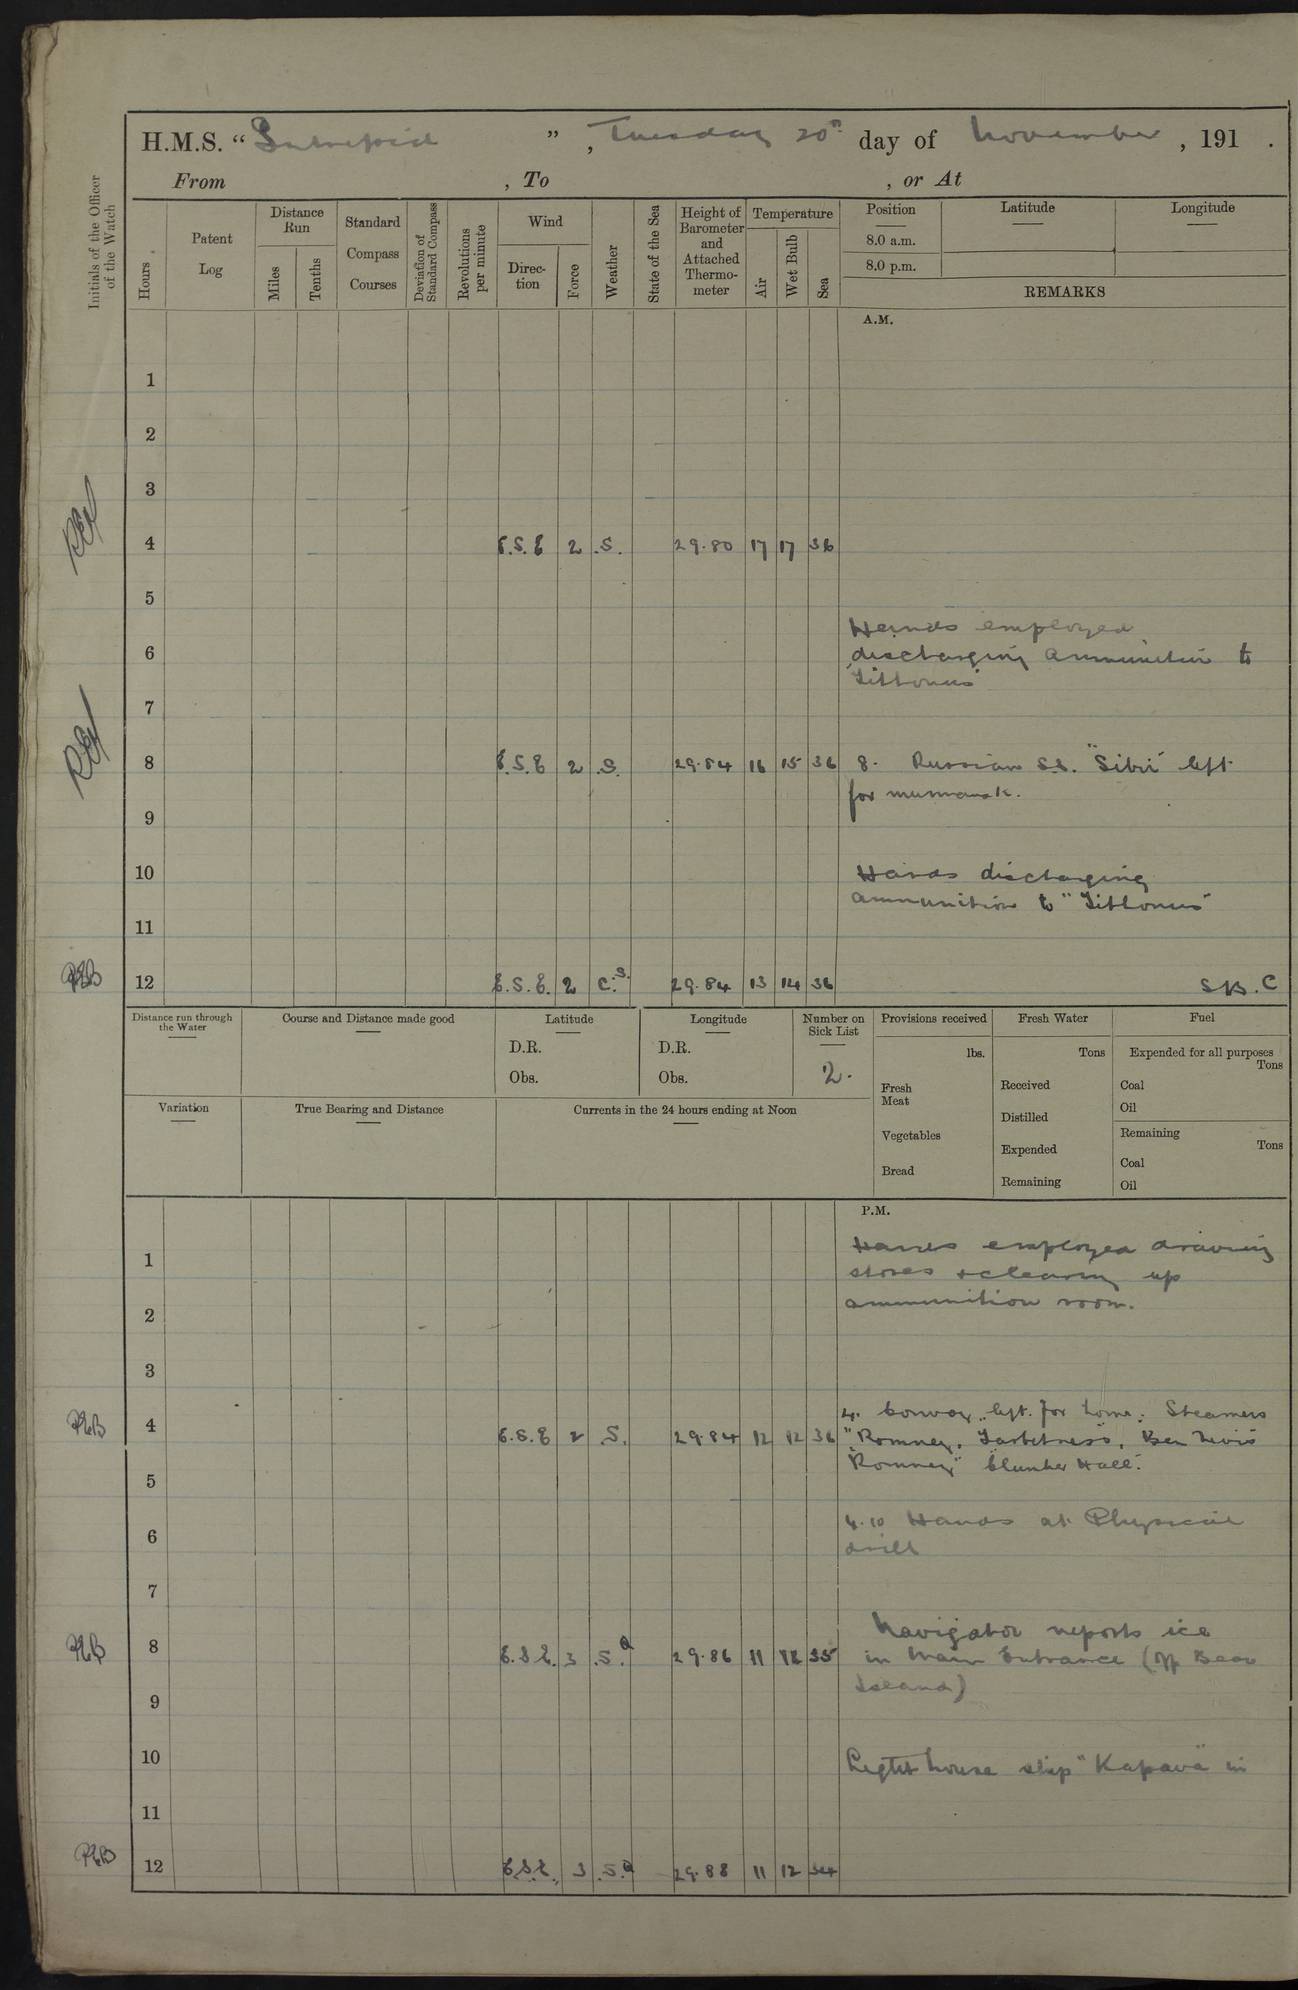 H.M.S. “Intrepid”, Tuesday 20th day of November, 191 .
From , To , or At
Initials of the Officer of the Watch
Hours
Patent Log
Distance Run
Miles
Tenths
Standard Compass Courses
Deviation of Standard Compass
Revolutions per minute
Wind
Direction
Force
Weather
State of the Sea
Height of Barometer and Attached Thermometer
Temperature
Air
Wet Bulb
Sea
Position
8.0 a.m.
8.0 p.m.
Latitude
Longitude
REMARKS
A.M.
1
2
3
4 E.S.E 2 .S. 29.80 17 17 36
5
Hands employed
6 discharging ammunition to
7
8 E.S.E 2 .S. 29.84 16 15 36 8. Russian S.S. "Sibir" left
for Murmansk.
9
10 Hands discharging
ammunition to
11
12 E.S.E. 2 C.S. 29.84 13 14 36
Distance run through the Water
Course and Distance made good
Latitude
D.R.
Obs.
Longitude
D.R.
Obs.
Number on Sick List
2.
Provisions received
lbs.
Fresh Meat
Vegetables
Bread
Fresh Water
Tons
Received
Distilled
Expended
Remaining
Fuel
Expended for all purposes
Tons
Coal
Oil
Remaining
Tons
Coal
Oil
Variation
True Bearing and Distance
Currents in the 24 hours ending at Noon
P.M.
Hands employed drawing
1
stores & clearing up
ammunition room.
2
3
4. Convoy left for home: Steamers
4 E.S.E 2 .S. 29.84 12 12 36 "Romney, Tarbetness, Ben Nevis
Romney" Clumber Hall".
5
4.10 Hands at Physical
6 drill
7
Navigator reports ice
8 E.S.E. 3 .S.Q 29.86 11 12 35 in Main Entrance (off Bear
Island)
9
10 Light house ship "Kapava" in
11
12 E.S.E. 3 .S.Q 29.88 11 12 34